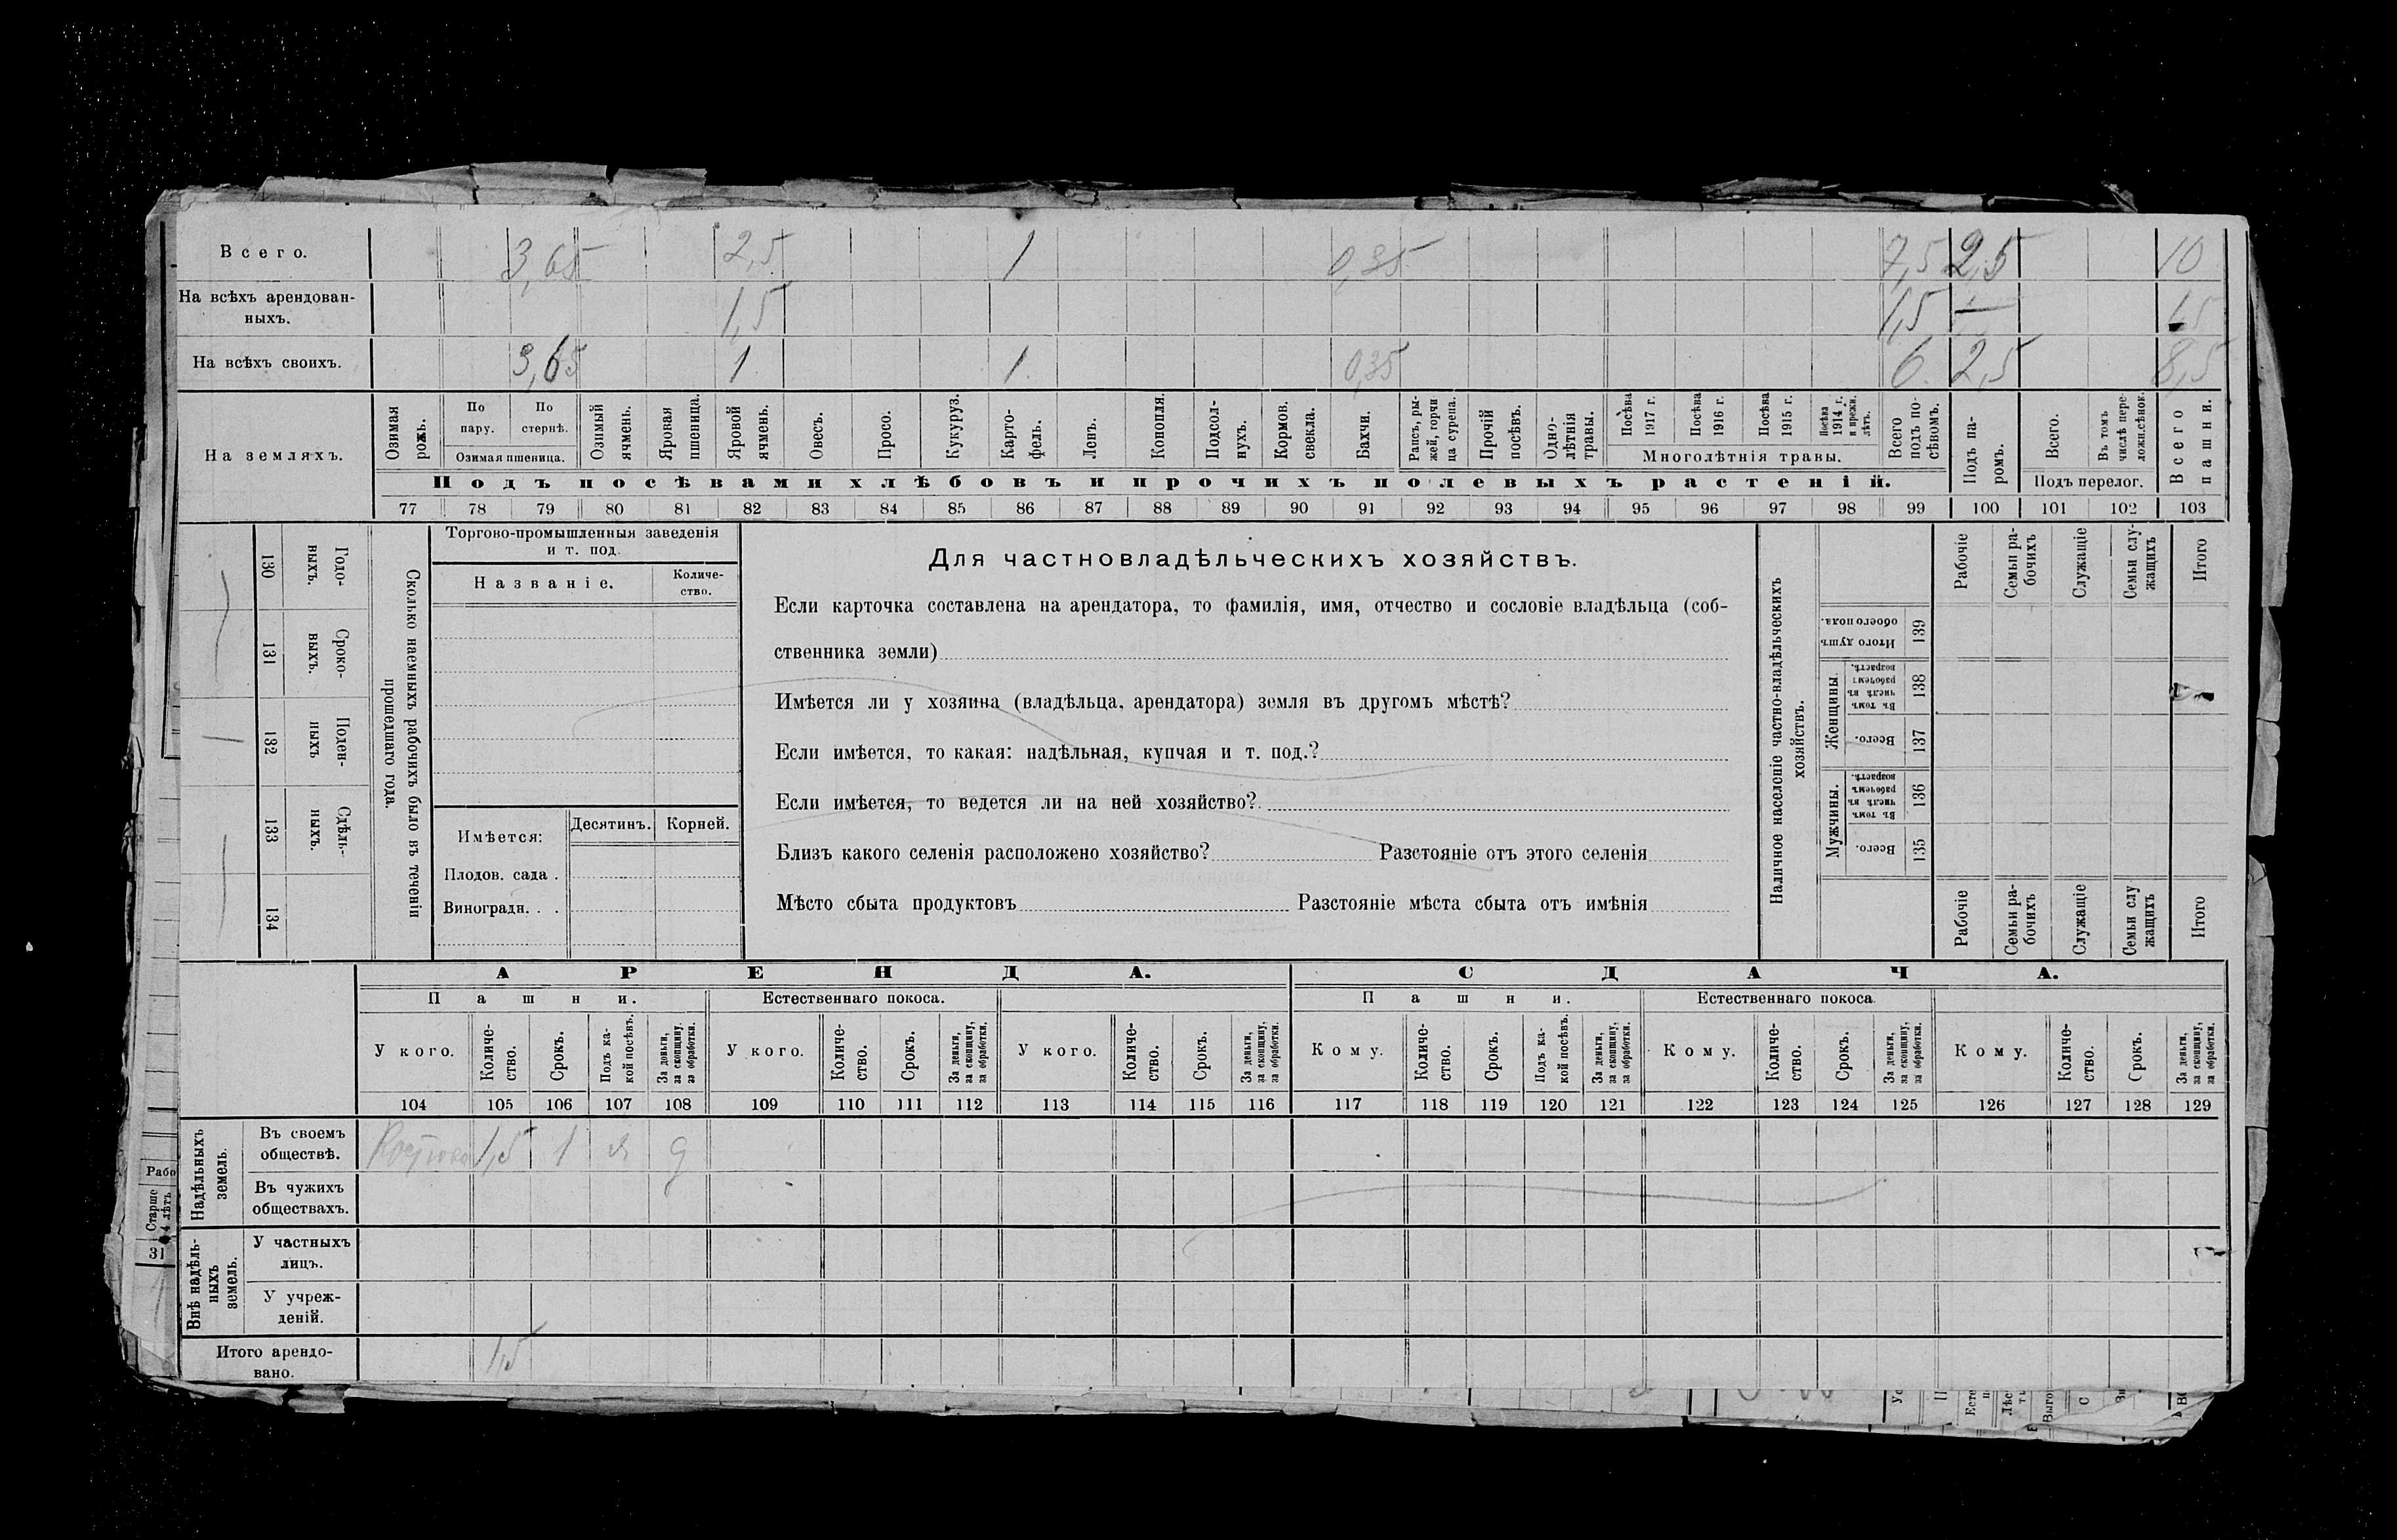 Всего. 3,65 2,5 1 0,35 7,5 2,5 10
На всѣхъ арендован-
ныхъ. 1,5 1,5 — 1,5
На всѣхъ своихъ. 3,65 1 1 0,35 6 2,5 8,5
На земляхъ.
Озимая рожь.
По пару.
По стернѣ.
Озимая пшеница.
Озимый ячмень.
Яровая пшеница.
Яровой ячмень.
Овесъ.
Просо.
Кукуруз.
Карто-
фель.
Ленъ.
Конопля.
Подсол-
нухъ.
Кормов. свекла.
Бахчи.
Рапсъ, ры-
жей, горчи
ца сурепа.
Прочій посѣвъ.
Одно-
лѣтнія травы.
Посѣва 1917 г.
Посѣва 1916 г.
Посѣва 1915 г.
Посѣва 1914 г. и прежн. лѣтъ.
Многолѣтнія травы.
Всего подъ по-
сѣвомъ.
Подъ па-
ромъ.
Всего.
Въ томъ числѣ пере-
ложн.сѣнок.
Подъ перелог.
Всего пашни.
Подъ посѣвами хлѣбовъ и прочихъ полевыхъ растеній.
77 78 79 80 81 82 83 84 85 86 87 88 89 90 91 92 93 94 95 96 97 98 99 100 101 102 103
130 Годо-
выхъ.
131 Сроко-
выхъ.
132 Поден-
ныхъ
133 Сдѣль-
ныхъ.
134
Сколько наемныхъ рабочихъ было въ теченіи
прошедшаго года.
Торгово-промышленныя заведенія
и т. под.
Названіе. Количе-
ство.
Имѣется: Десятинъ. Корней.
Плодов. сада .
Виноградн. . .
Для частновладѣльческихъ хозяйствъ.
Если карточка составлена на арендатора, то фамилія, имя, отчество и сословіе владѣльца (соб-
ственника земли)
Имѣется ли у хозяина (владѣльца, арендатора) земля въ другомъ мѣстѣ?
Если имѣется, то какая: надѣльная, купчая и т. под.?
Если имѣется, то ведется ли на ней хозяйство?
Близъ какого селенія расположено хозяйство? Разстояніе отъ этого селенія
Мѣсто сбыта продуктовъ Разстояніе мѣста сбыта отъ имѣнія
Наличное населеніе частно-владѣльческихъ
хозяйствъ.
Рабочіе
Семьи ра-
бочихъ
Служащіе
Семьи слу-
жащихъ
Итого
Итого душъ обоего пола. 139
Женщины.
Въ томъ числѣ въ рабочемъ возрастѣ. 138
Всего. 137
Мужчины.
Въ томъ числѣ въ рабочемъ возрастѣ. 136
Всего. 135
Рабочіе
Семьи ра-
бочихъ
Служащіе
Семьи слу
жащихъ
Итого
АРЕНДА. СДАЧА.
Пашни. Естественнаго покоса. Пашни. Естественнаго покоса.
У кого.
Количе-
ство.
Срокъ.
Подъ ка-
кой посѣвъ.
За деньги, за скопщину. за обработки.
У кого.
Количе-
ство.
Срокъ.
За деньги, за скопщину, за обработки.
У кого.
Количе-
ство.
Срокъ.
За деньги, за скопщину, за обработки.
Кому.
Количе-
ство.
Срокъ.
Подъ ка-
кой посѣвъ.
За деньги, за скопщину, за обработки.
Кому.
Количе-
ство.
Срокъ.
За деньги, за скопщину, за обработки.
Кому.
Количе-
ство.
Срокъ.
За деньги, за скопщину, за обработки.
104 105 106 107 108 109 110 111 112 113 114 115 116 117 118 119 120 121 122 123 124 125 126 127 128 129
Надѣльныхъ
земель.
Въ своемъ
обществѣ. 1,5 1 я д
Въ чужихъ
обществахъ.
Внѣ надѣль-
ныхъ
земель.
У частныхъ
лицъ.
У учреж-
деній.
Итого арендо-
вано. 1,5
Рабо
Старше
31